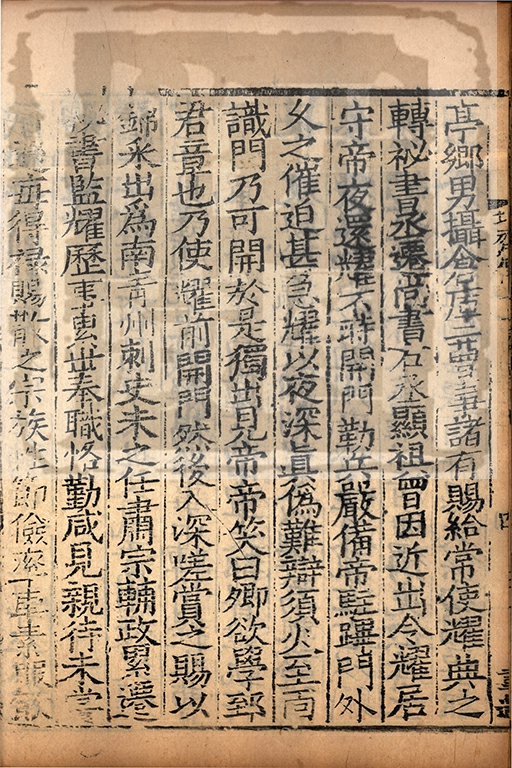 亭鄉男攝金石庫事諸有賜給常使耀典之
轉祕書丞遷尚書右丞顯祖曾因近出令耀居
守帝夜還耀不時開門勤兵嚴備帝駐蹕門外
久之催迫甚急耀以夜深真偽難辯須火至面
識門乃可開於是獨出見帝帝笑曰卿欲學郅
君章也乃使耀前開門然後入深嗟賞之賜以
錦采出為南青州刺史未之任肅宗輔政累遷
祕書監耀歷事累世奉職恪勤咸見親待未嘗
毎得祿賜散之宗族性節儉率車素服飲